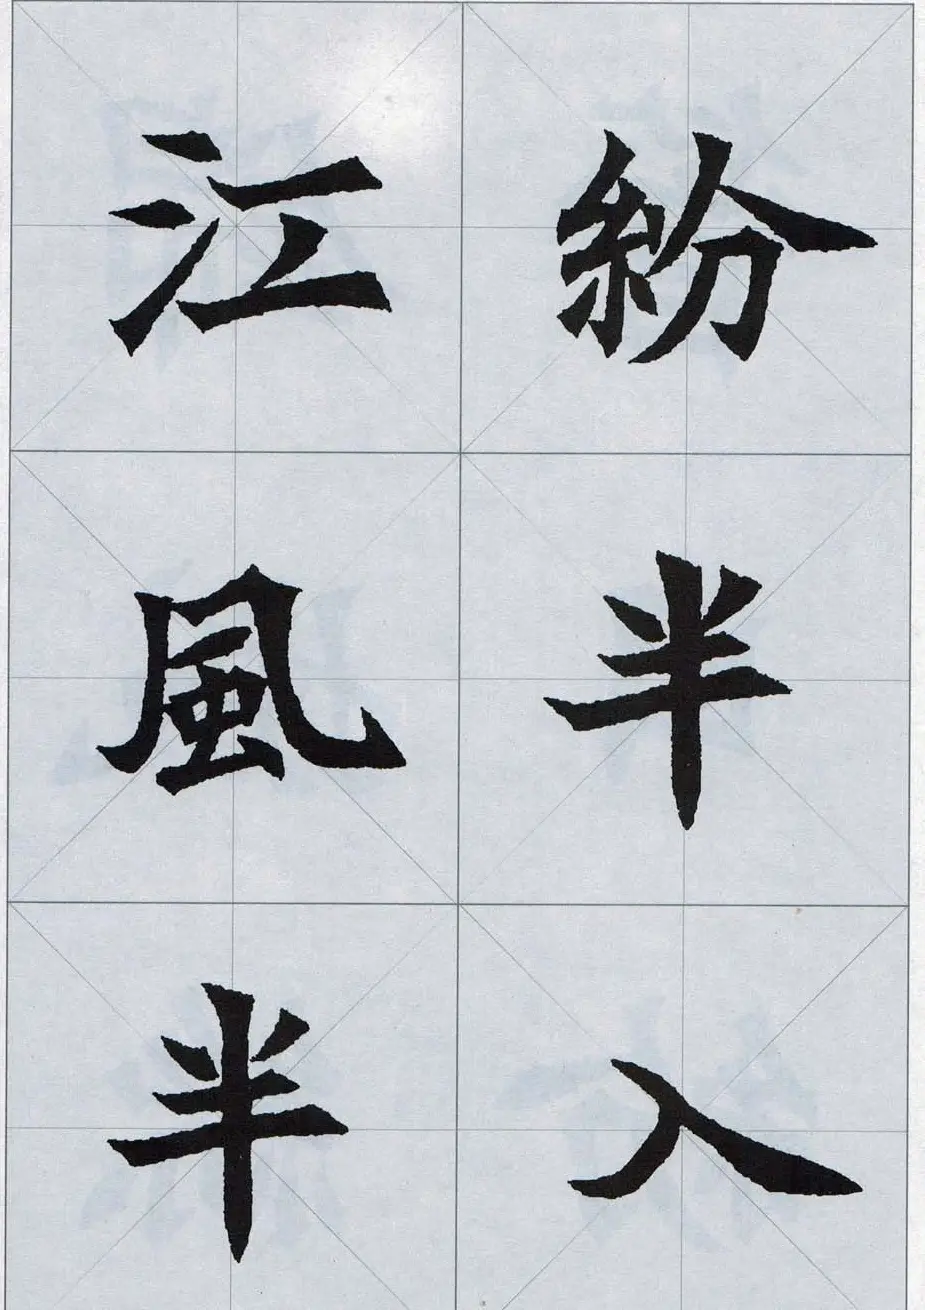 紛半入
江風半